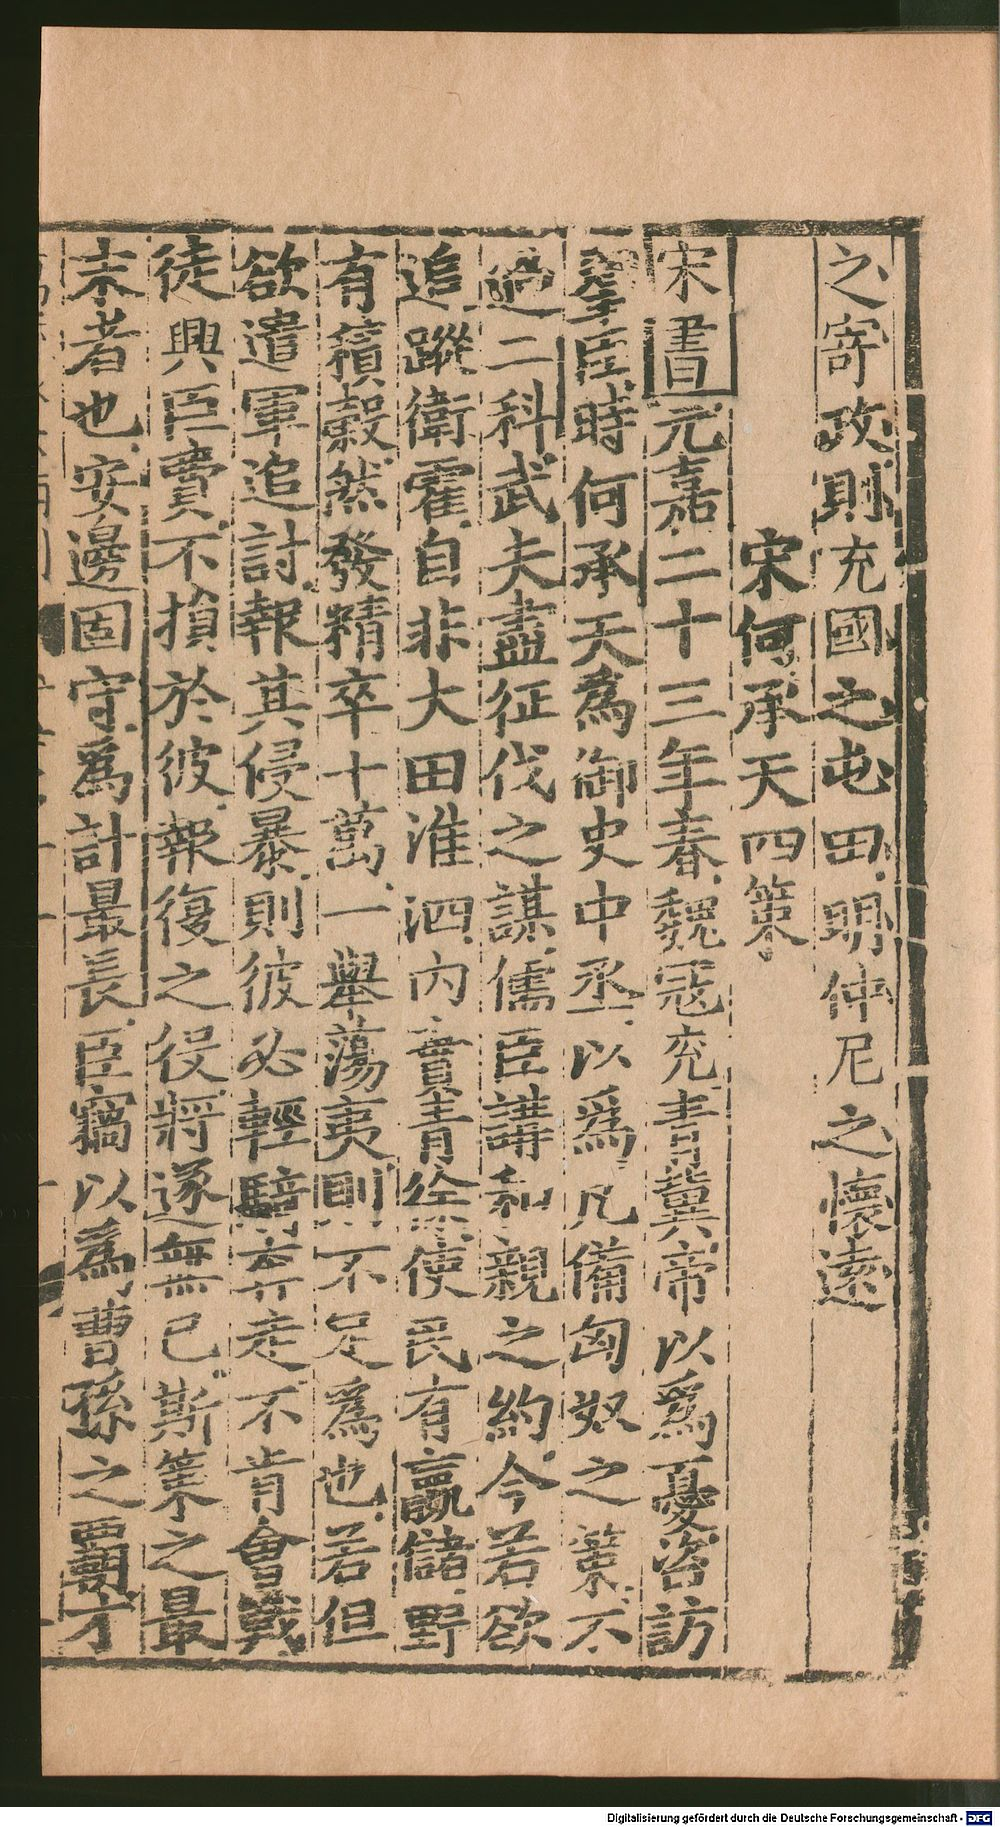 之寄政則充國之屯田明仲尼之懷遠
宋何承天四策
宋書元嘉二十三年春魏寇兖青冀帝以爲憂咨訪
羣臣時何承天爲御史中丞以爲凡備匈奴之策不
過二科武夫盡征伐之謀儒臣講和親之約今若欲
追蹤衛霍自非大田淮泗内實青徐使民有贏儲野
有積穀然發精卒十萬一舉蕩夷則不足爲也若但
欲遣軍追討報其侵暴則彼必輕騎奔走不肯會戰
徒興巨費不損於彼報復之役將遂無已斯策之最
末者也安邊固守爲計最長臣竊以爲曹孫之霸才
Digitalisierung gefördert durch die Deutsche Forschungsgemeinschaft - DFG